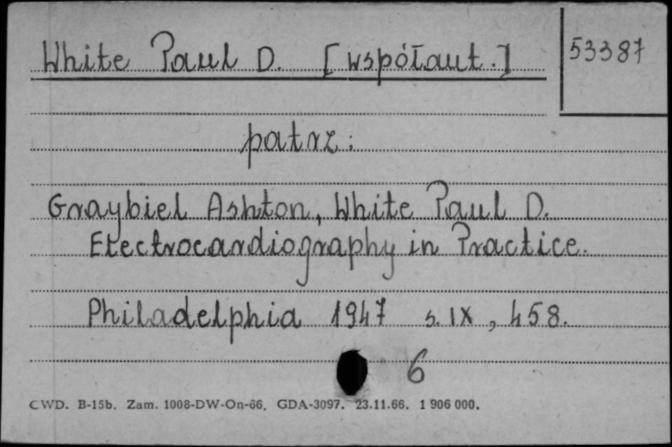 White Paul D. [współaut.]
53387
patrz:
Graybiel Ashton, White Paul D.
Electrocardiography in Practice.
Philadelphia 1947 s. IX, 458.
6
CWD. B-15b. Zam. 1008-DW-On-66. GDA-3097. 23.11.66. 1 906 000.